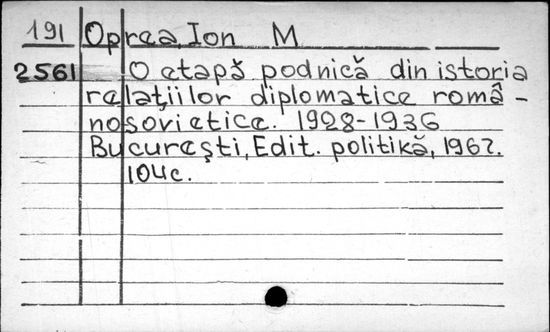 191 Oprea, Ion M
2561 O etapă podnică din istoria
relațiilor diplomatice româ-
nosovietice. 1928-1936
București, Edit. politikă, 1967.
104c.